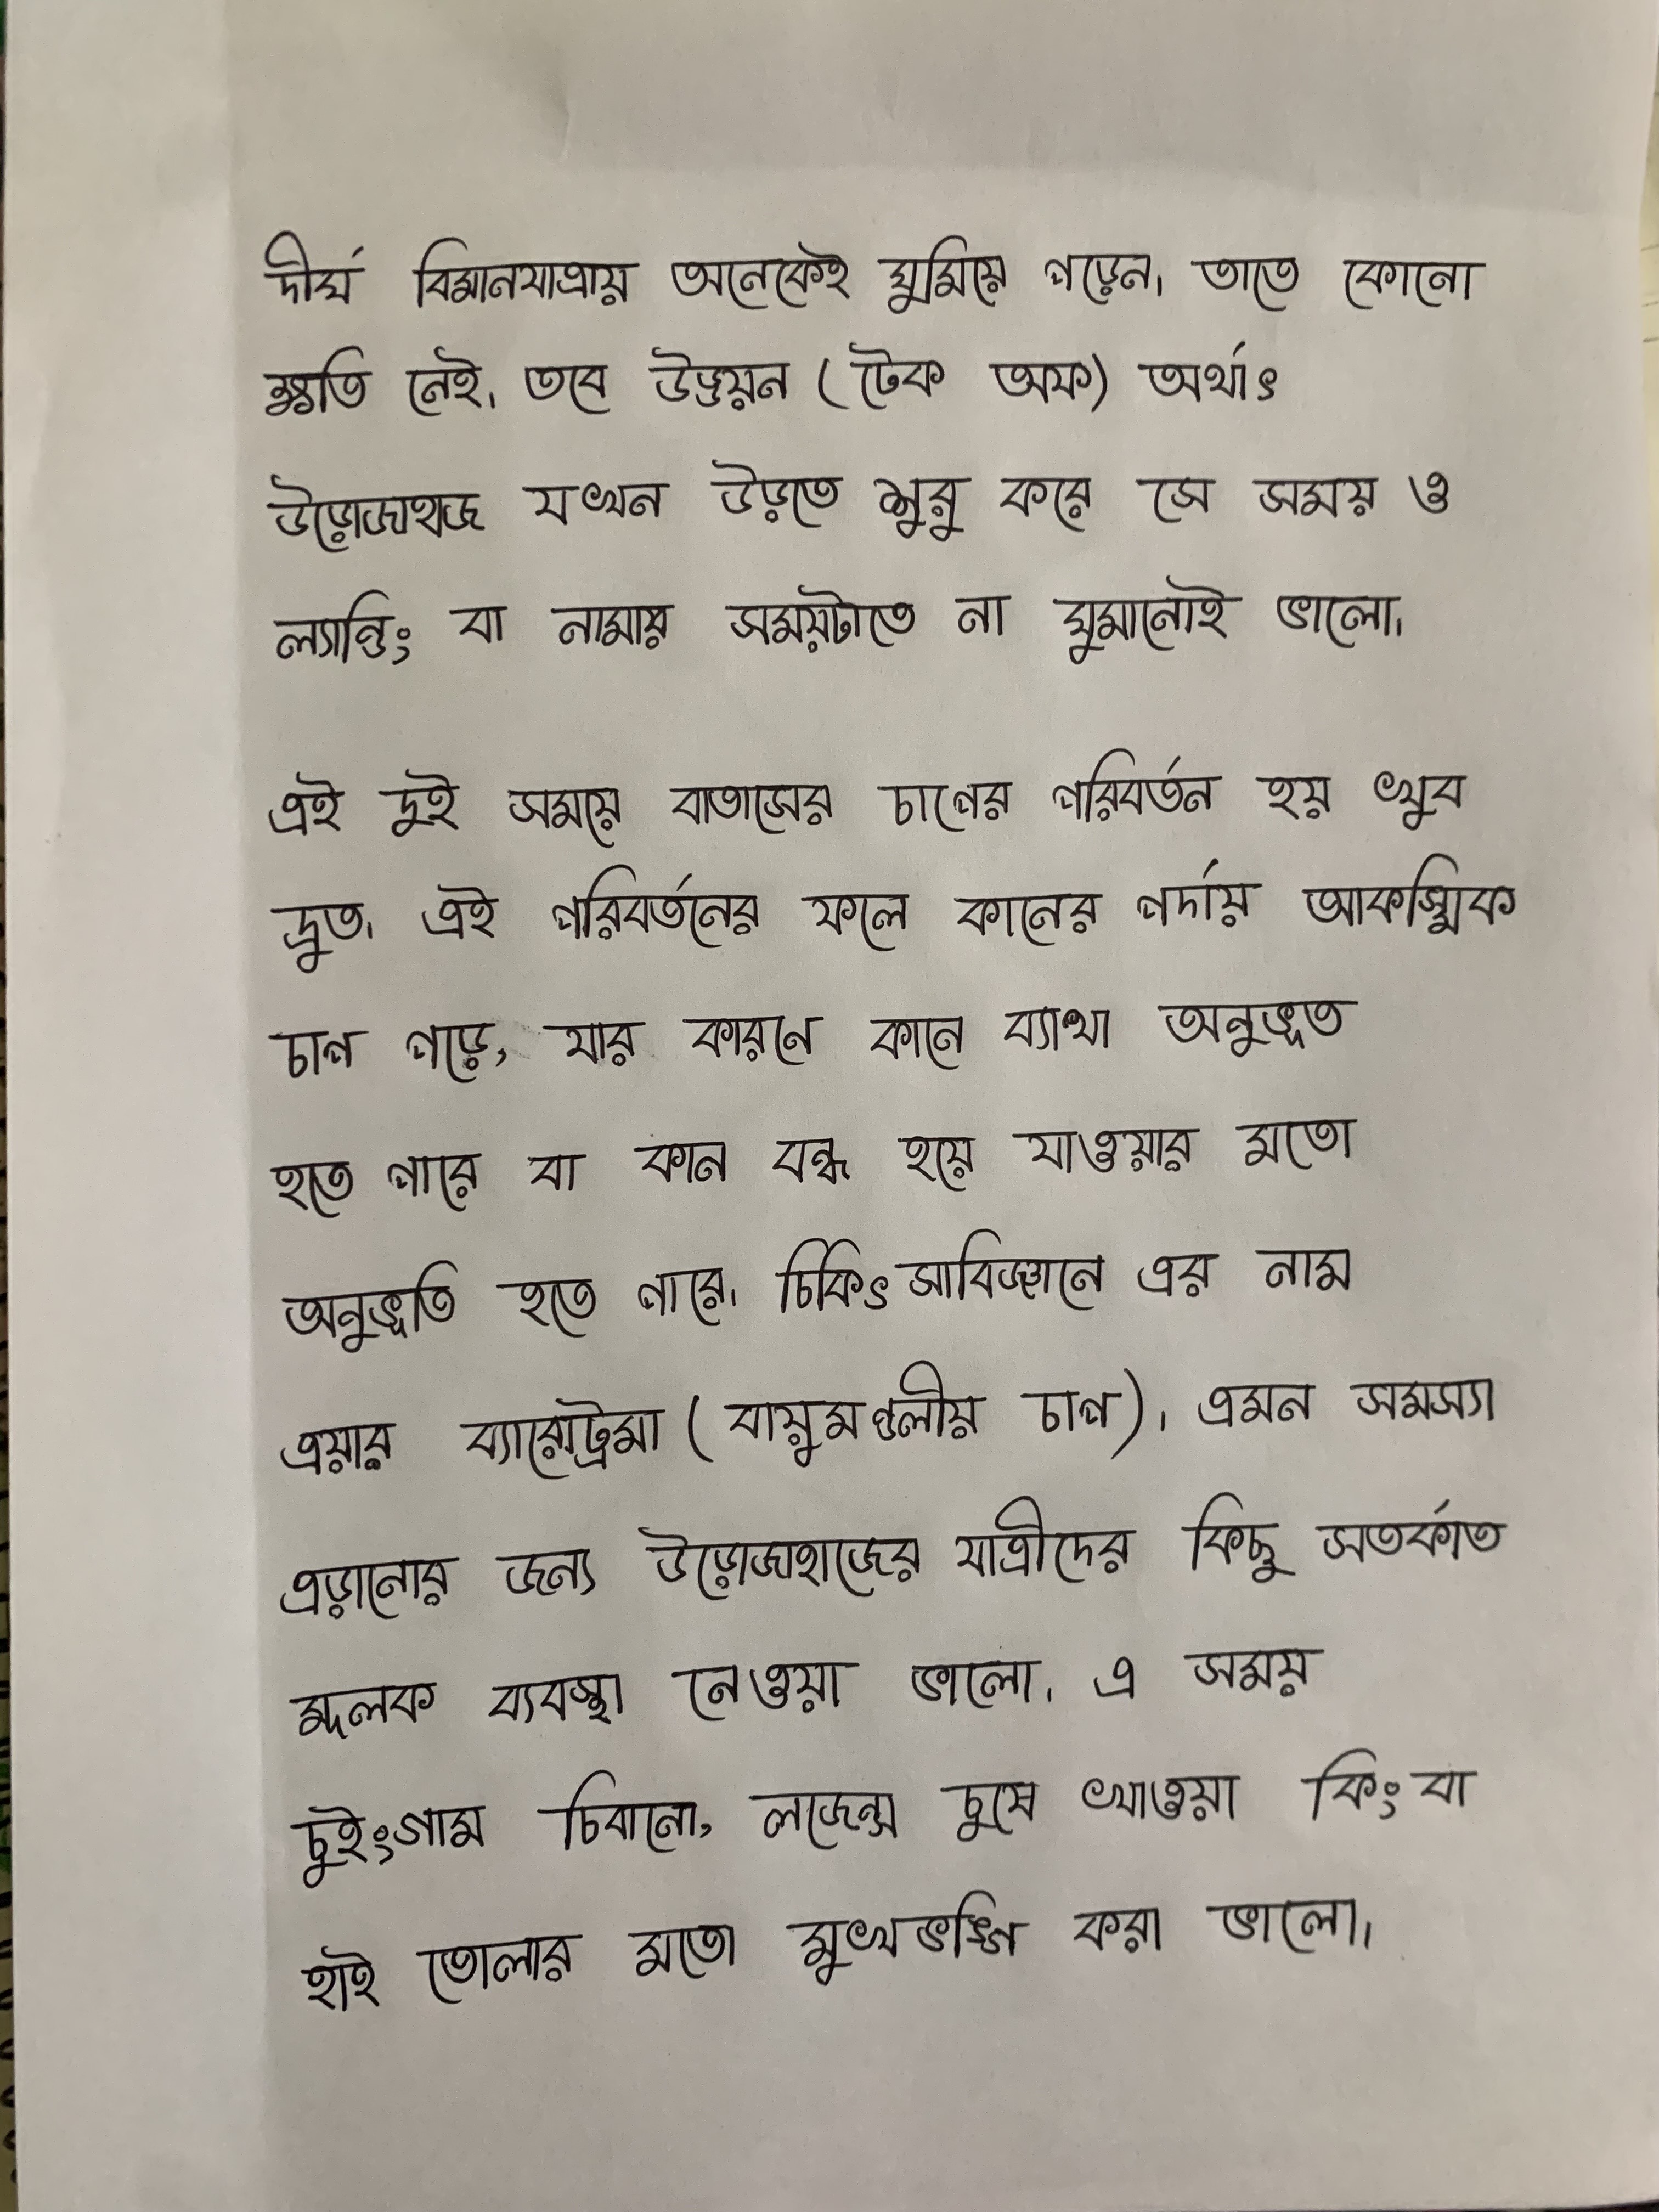 দীর্ঘ বিমানযাত্রায় অনেকেই ঘুমিয়ে পড়েন। তাতে কোনো
ক্ষতি নেই। তবে উড্ডয়ন (টেক অফ) অর্থাৎ
উড়োজাহাজ যখন উড়তে শুরু করে সে সময় ও
ল্যান্ডিং বা নামার সময়টাতে না ঘুমানোই ভালো।
এই দুই সময়ে বাতাসের চাপের পরিবর্তন হয় খুব
দ্রুত। এই পরিবর্তনের ফলে কানের পর্দায় আকস্মিক
চাপ পড়ে, যার কারণে কানে ব্যাথা অনুভূত
হতে পারে বা কান বন্ধ হয়ে যাওয়ার মতো
অনুভূতি হতে পারে। চিকিৎসাবিজ্ঞানে এর নাম
এয়ার ব্যারোট্রমা (বায়ুমণ্ডলীয় চাপ)। এমন সমস্যা
এড়ানোর জন্য উড়োজাহাজের যাত্রীদের কিছু সতর্কাত
মূলক ব্যবস্থা নেওয়া ভালো। এ সময়
চুইংগাম চিবানো, লজেন্স চুষে খাওয়া কিংবা
হাই তোলার মতো মুখভঙ্গি করা ভালো।